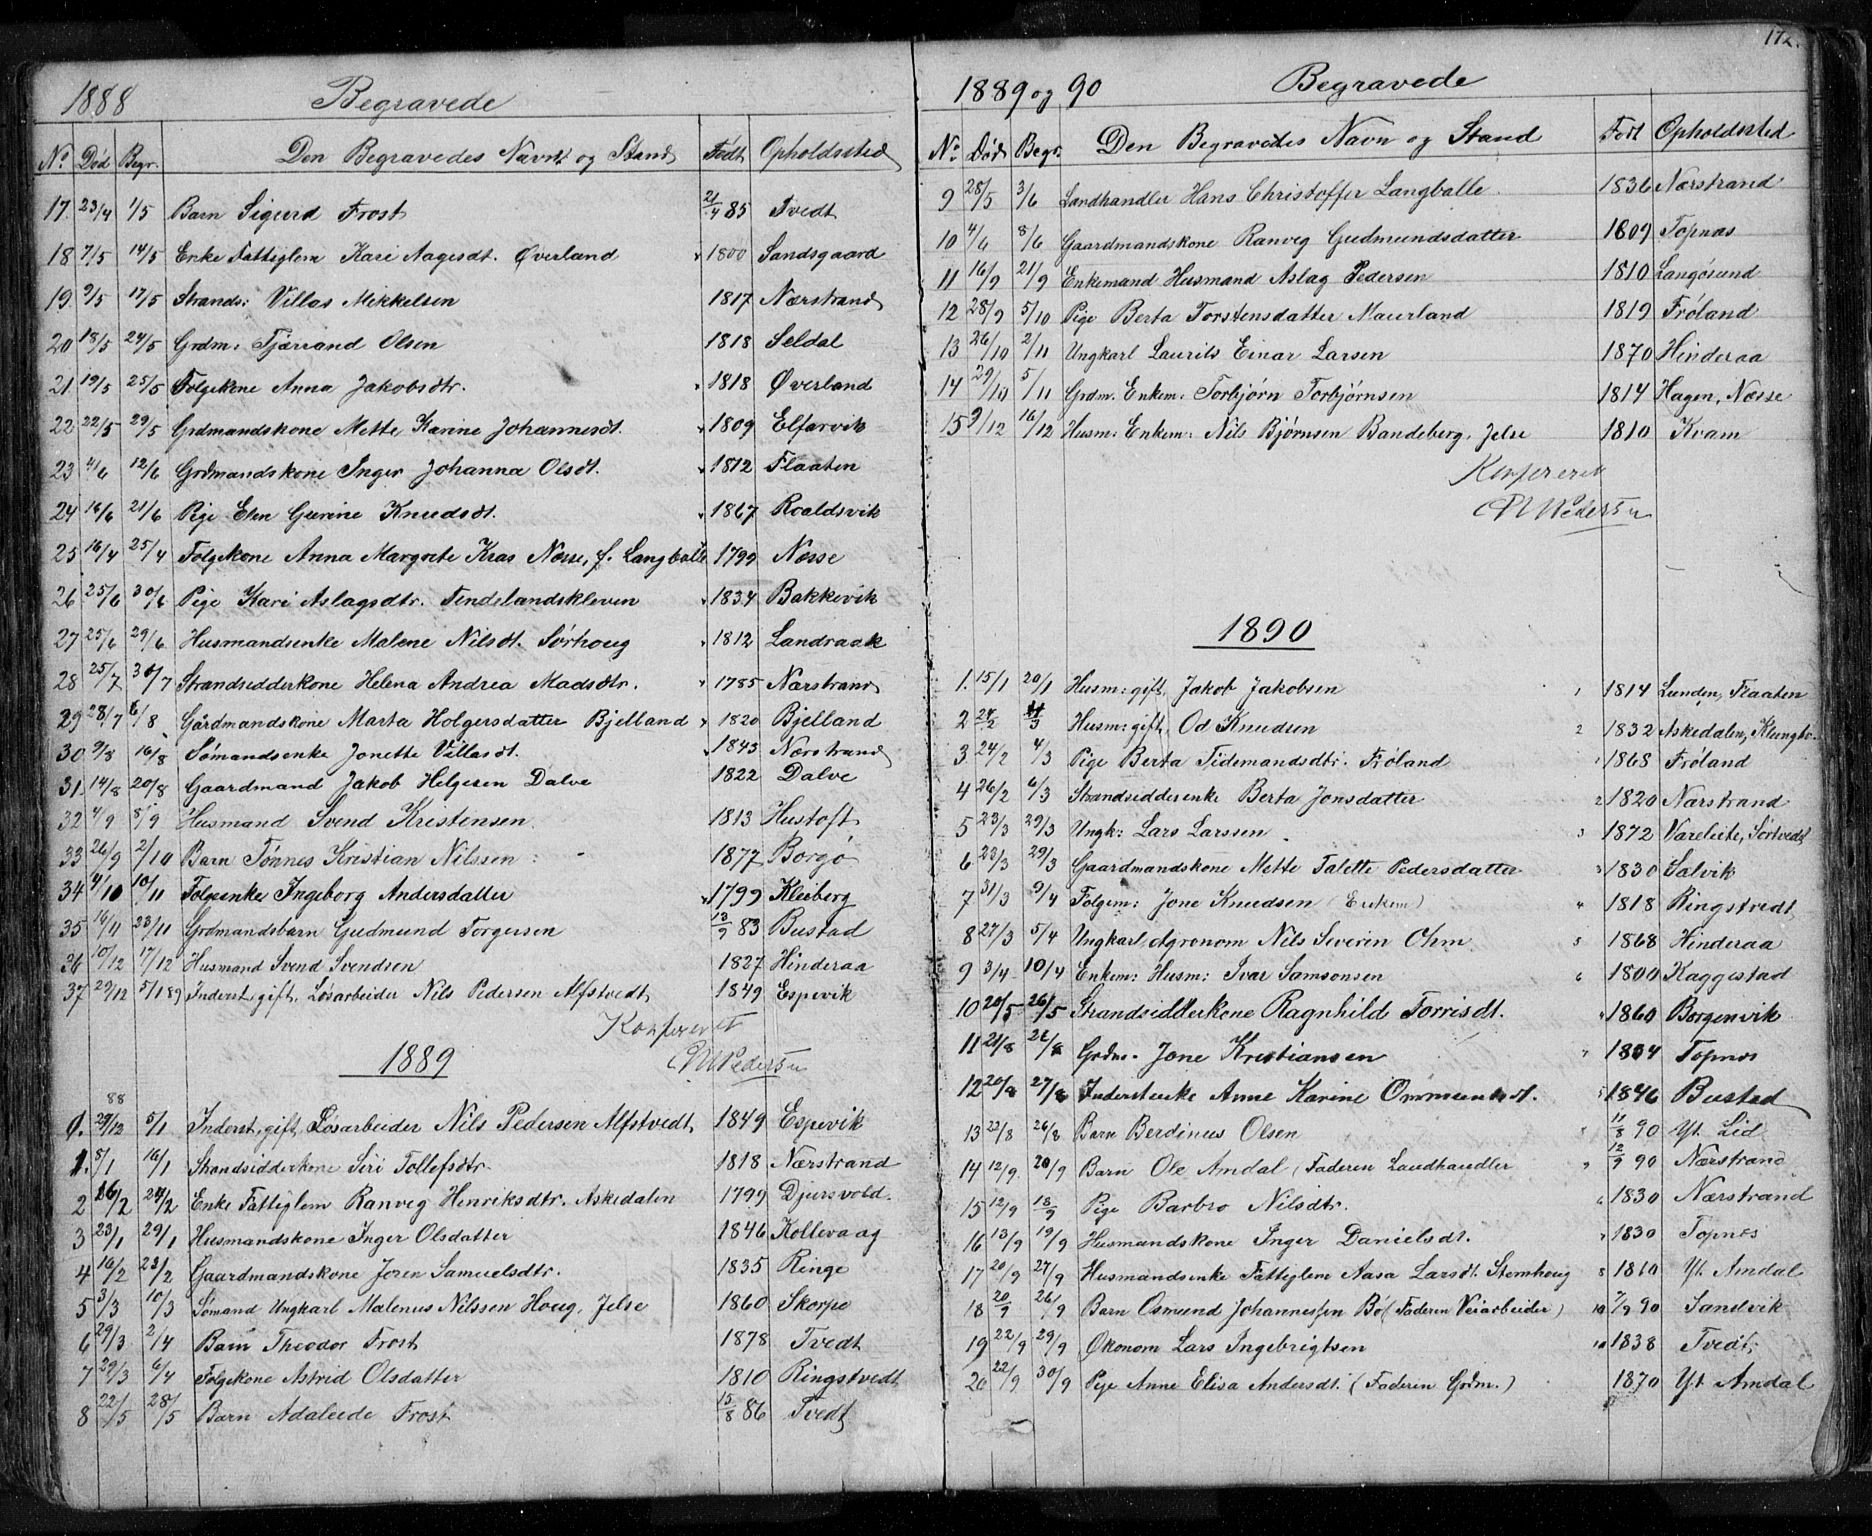 1888 Begravede
No Død Begr. Den Begravedes Navn og Stand Født Opholdssted
17. 23/4 1/5 Barn Sigurd Frost 21/4 85 Tvedt
18 7/5 14/5 Enke Fattiglem Kari Aagesdt. Øverland 1800 Sandsgaard
19. 9/5 17/5 Strands: Villas Mikkelsen 1817 Nærstrand
20 18/5 24/5 Grdm: Tjærand Olsen 1818 Seldal
21. 19/5 25/5 Folgekone Anna Jakobsdtr. 1818 Øverland
22 22/5 29/5 Grdmandskone Mette Karine Johannesdt. 1809 Elfarvik
23 4/6 12/6 Grdmandskone Inger Johanna Olsdt. 1812 Flaaten
24 16/6 21/6 Pige Elen Gurine Knudsdt. 1867 Roaldsvik
25 16/4 25/4 Folgekone Anna Margrete Kras Næsse, f. Langballe 1799 Næsse
26 25/6 30/6 Pige Kari Aslagsdtr. Tendelandskleven 1834 Bakkevik
27 25/6 29/6 Husmandsenke Malene Nilsdt. Sørhoug 1812 Landraak
28 25/7 30/7 Strandsidderkone Helena Andrea Madsdtr. 1785 Nærstrand
29 28/7 6/8 Gårdmandskone Marta Holgersdatter Bjelland 1820 Bjelland
30 9/8 16/8 Sømandsenke Jonette Villasdt. 1843 Nærstrand
31. 14/8 20/8 Gaardmand Jakob Helgesen Dalve 1822 Dalve
32 4/9 8/9 Husmand Svend Kristensen 1813 Hustoft
33 26/9 2/10 Barn Tønnes Kristian Nilssen 1877 Borgø
34 4/10 10/11 Folgeenke Ingeborg Andersdatter 1799 Kleiberg
35 16/11 23/11 Grdmandsbarn Gudmund Torgersen 13/9 83 Bustad
36 10/12 17/12 Husmand Svend Svendsen 1827 Hinderaa
37 29/12 5/1 89 Inderst, gift, Løsarbeider Nils Pedersen Alfstvedt 1849 Espevik
Konfereret
1889
88
0. 29/12 5/1 Inderst, gift, Løsarbeider Nils Pedersen Alfstvedt 1849 Espevik
1. 8/1 16/1 Strandsidderkone Siri Tollefsdtr. 1818 Nærstrand
2 16/2 24/2 Enke Fattiglem Ranveg Henriksdtr. Askedalen 1799 Djursvold.
3 23/1 29/1 Husmandskone Inger Olsdatter 1846 Kollevaag
4 16/2 23/2 Gaardmandskone Joren Samuelsdtr. 1835 Ringe
5 3/3 10/3 Sømand Ungkarl Malenus Nilssen Houg, Jelse 1860 Skorpe
6 29/3 2/4 Barn Theodor Frost 1878 Tvedt
7 29/3 6/4 Folgekone Astrid Olsdatter 1810 Ringstvedt
8 22/5 28/5 Barn Adaleide Frost 15/8 86 Tvedt
172.
1889 og 90 Begravede
No. Død Begr. Den Begravedes Navn og Stand Født Opholdssted
9 28/5 3/6 Landhandler Hans Christoffer Langballe 1836 Nærstrand
10 4/6 8/6 Gaardmandskone Ranveg Gudmundsdatter 1809 Topnæs
11 16/9 21/9 Enkemand Husmand Aslag Pedersen 1810 Langøsund
12 28/9 5/10 Pige Berta Torstensdatter Maurland 1819 Frøland
13 26/10 2/11 Ungkarl Laurits Einar Larsen 1870 Hinderaa
14 29/10 5/11 Grdm. Enkem: Torbjørn Torbjørnsen 1814 Hagen, Næsse
15 9/12 16/12 Husm: Enkem: Nils Bjørnsen Bandeberg, Jelse 1810 Kvam
Konfereret
1890
1. 15/1 20/1 Husm: gift, Jakob Jakobsen 1814 Lunden, Flaaten
2 24/2 4/3 Husm: gift, Od Knudsen 2 1832 Askedalen,
3. 24/2 4/3 Pige Berta Tidemandsdtr. Frøland 1868 Frøland
4 26/2 6/3 Strandsidderenke Berta Jonsdatter 2 1820 Nærstrand
5 23/3 29/3 Ungk: Lars Larssen 3 1872 Vareliite, Sørtvedt
6 23/3 29/3 Gaardmandskone Mette Talette Pedersdatter 3 1830 Salvik
7 31/3 9/4 Folgem: Jone Knudsen (Enkem) 4 1818 Ringstvedt
8 27/3 5/4 Ungkarl, Agronom Nils Severin Ohm 5 1868 Hinderaa
9 3/4 10/4 Enkem: Husm: Ivar Samsonsen 6 1800 Kaggestad
10 20/5 26/5 Strandsidderkone Ragnhild Torrisdt. 1860 Borgenvik
11 21/8 26/8 Grdm. Jone Kristiansen 1804 Topnæs
12 20/8 27/8 Inderstenke Anne Karine Ommundsdt. 1846 Bustad
13 22/8 26/8 Barn Berdinus Olsen 11/8 90 Yt. Lid
14 12/9 20/9 Barn Ole Amdal (Faderen Landhandler 12/9 90 Nærstrand
15 12/9 18/9 Pige Barbro Nilsdtr. 1830 Nærstrand
16 13/9 19/9 Husmandskone Inger Danielsdt. 1830 Topnæs
17 20/9 27/9 Husmandsenke Fattiglem Aasa Larsdt. Stemhoug 8 1810 Yt. Amdal
18 20/9 26/9 Barn Osmund Johannessen Bø (Faderen Veiarbeider) 10 7/9 90 Sandvik
19 22/9 29/9 Økonom Lars Ingebrigtsen 10 1838 Tvedt
20 22/9 30/9 Pige Anne Elisa Andersdt. (Faderen Grdm.) 1870 Yt. Amdal